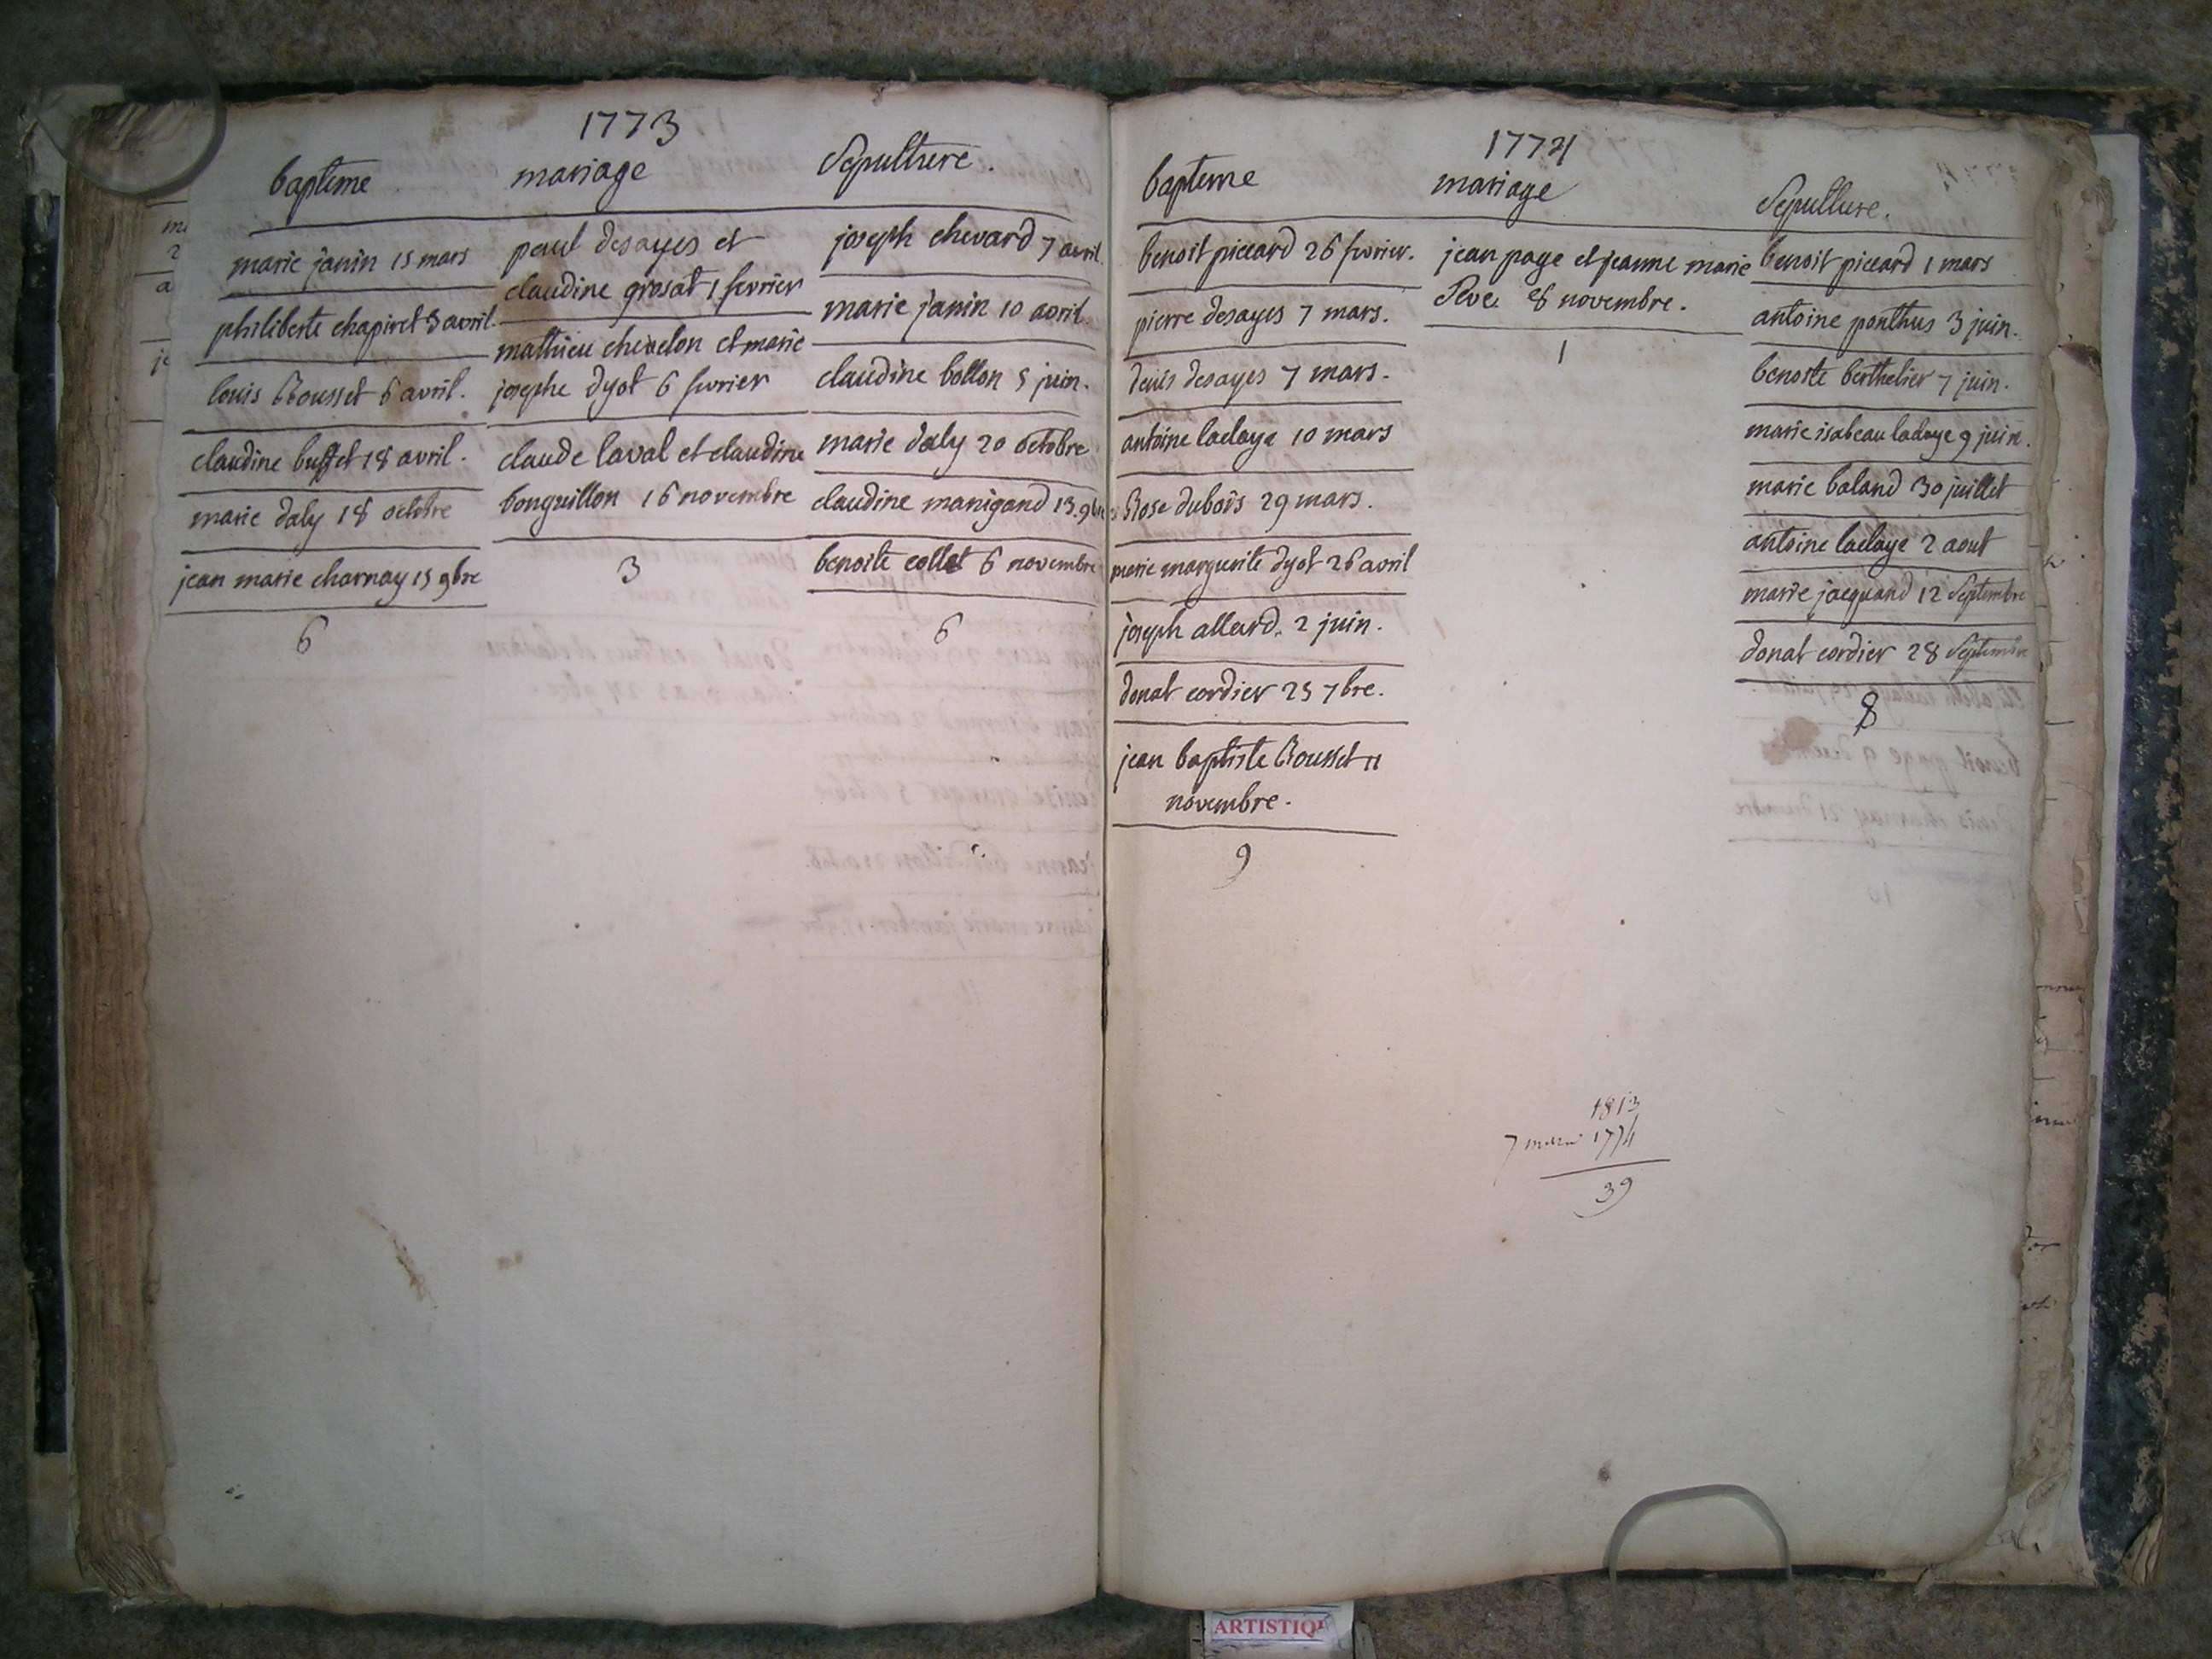 1773
bapteme
marie janin 15 mars
philiberte chapiret 3 avril.
louis Rousset 6 avril.
claudine buffet 18 avril.
marie daly 18 octobre
jean marie charnay 15 9bre
6
mariage
paul desayes et
claudine grosat 1 fevrier
mathieu chevelon et marie
josephe dyot 6 fevrier
claude laval et claudine
bonguillon 16 novembre
3
Sepulture.
joseph chevard 7 avril.
marie janin 10 avril.
claudine bollon 5 juin.
marie daly 20 octobre
claudine manigand 13. 9bre
benoite collet 6 novembre
6
1774
bapteme
benoit piccard 26 fevrier.
pierre desayes 7 mars.
denis desayes 7 mars.
antoine ladaye 10 mars
Rose dubois 29 mars.
marie marguerite dyot 26 avril
joseph allard. 2 juin.
donat cordier 25 7bre.
jean baptiste Rousset 11
novembre.
9
mariage
jean page et jeanne marie
Seve 28 novembre.
1
Sepulture.
benoit piccard 1 mars
antoine ponthus 3 juin.
benoite berthelier 7 juin.
marie isabeau ladaye 9 juin.
marie baland 30 juillet
antoine ladaye 2 aout
marie jacquand 12 Septembre
donat cordier 28 Septembre
8
1813
7 mars 1774
39
ARTISTIQ